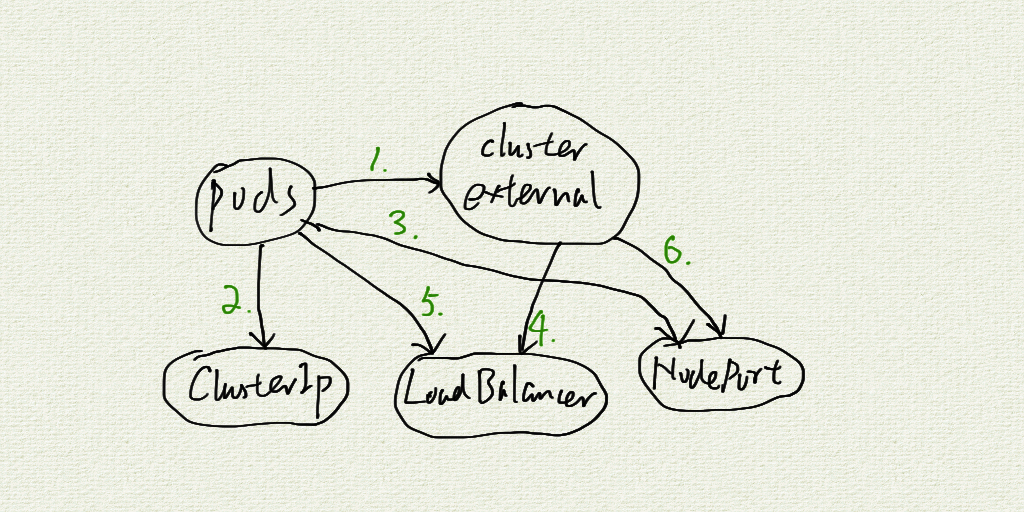 pods
1.
cluster
external
3.
6.
2.
5.
4.
ClusterIp
LoadBalancer
NodePort